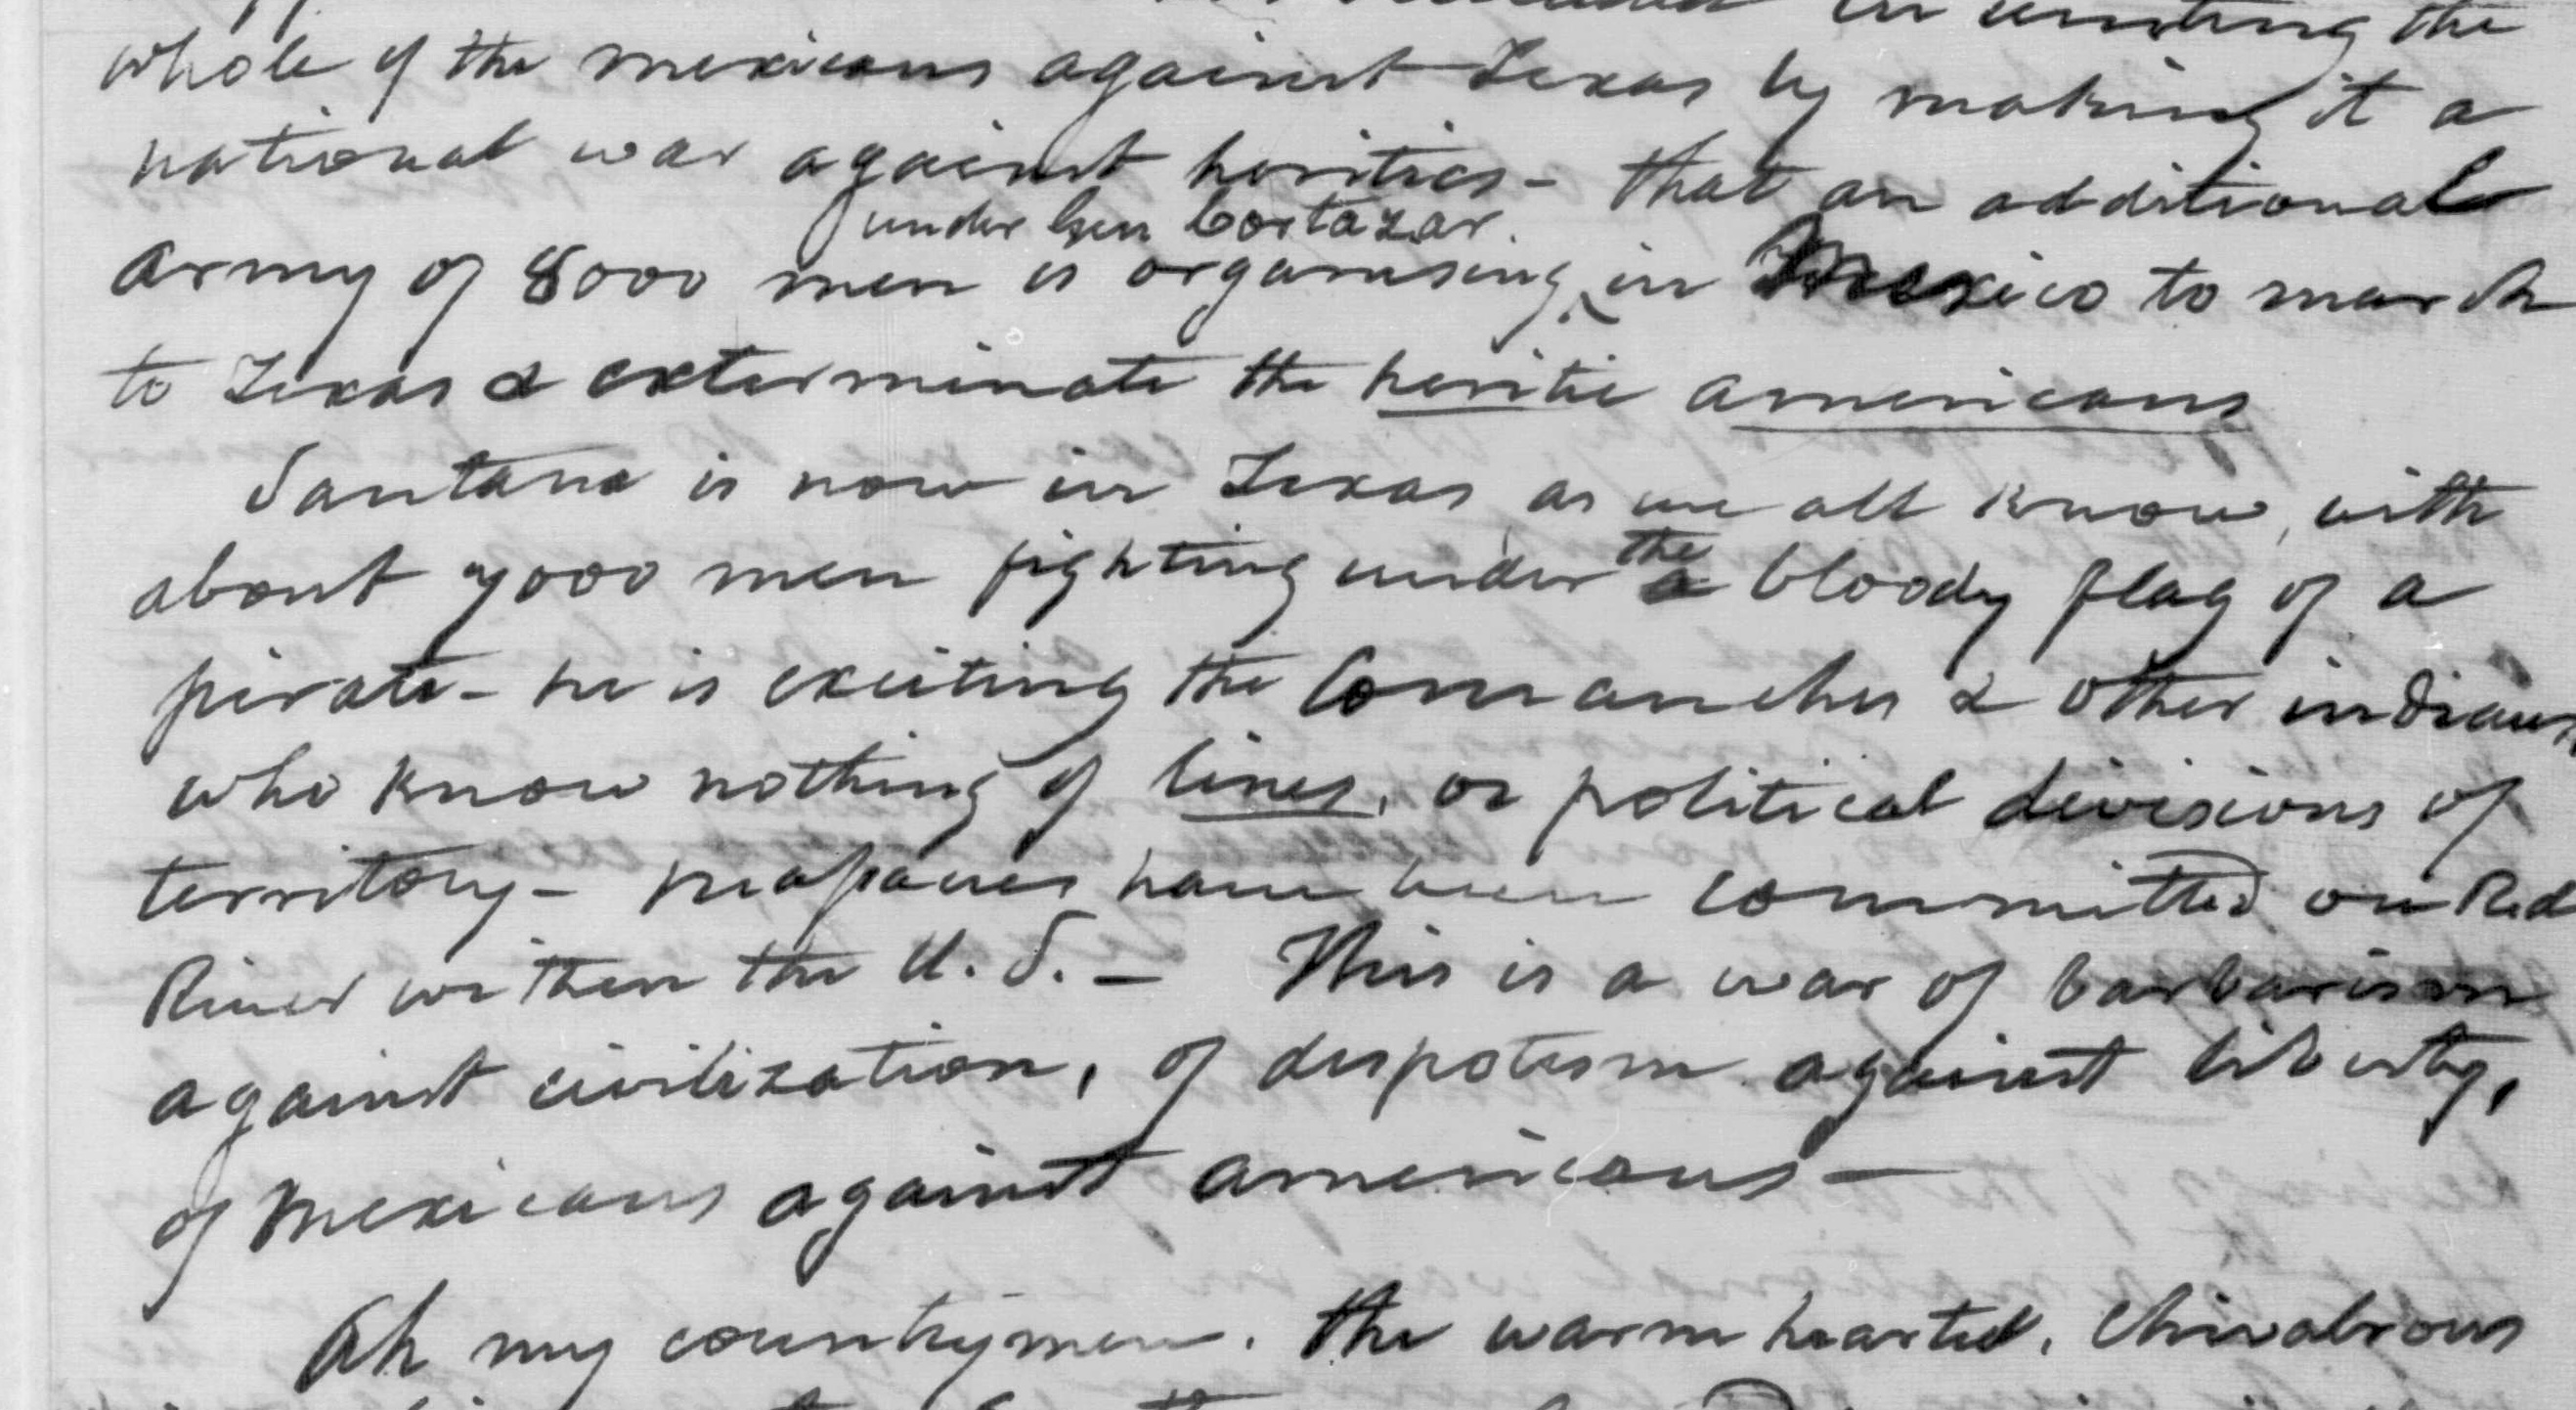 in uniting the
whole of the mexicans against Texas by making it a
national war against heritics - that an additional
under Gen Cortazar.
army of 8000 men is organising in Mexico to march
to Texas & exterminate the heritic americans
Santana is now in Texas as we all know, with
the
about 7000 men fighting under a bloody flag of a
pirate - he is exciting the Comanches & other indians
who know nothing of lines, or political divisions of
territory - masacres have been committed on Red
River within the U. S. - This is a war of barbarism
against civilization, of despotism against liberty,
of Mexicans against americans -
Oh my countrymen. the warm hearted, Chivalrous